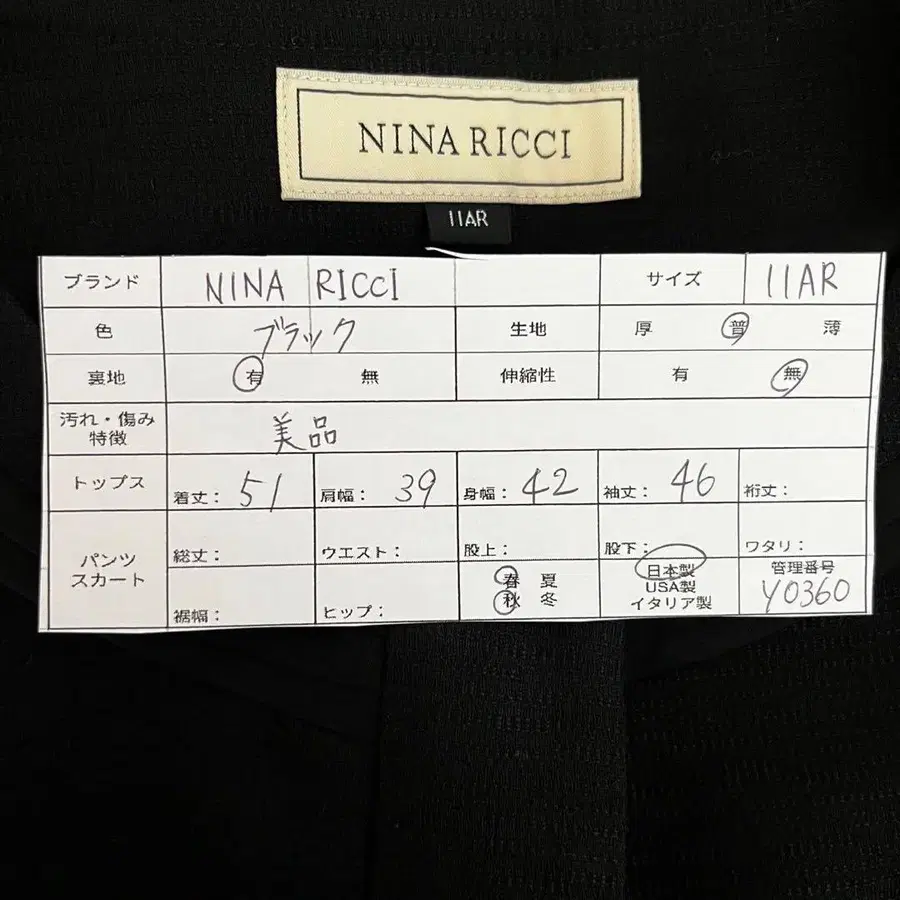 NINA RICCI
11AR
ブランド NINA RICCI サイズ 11AR
色 ブラック 生地 厚 普 薄
裏地 有 無 伸縮性 有 無
汚れ・傷み
特徴 美品
トップス 着丈： 51 肩幅： 39 身幅： 42 袖丈： 46 裄丈：
パンツ
スカート
総丈： ウエスト： 股上： 股下： ワタリ：
裾幅： ヒップ： 春 夏
秋 冬
日本製
USA製
イタリア製
管理番号
Y0360